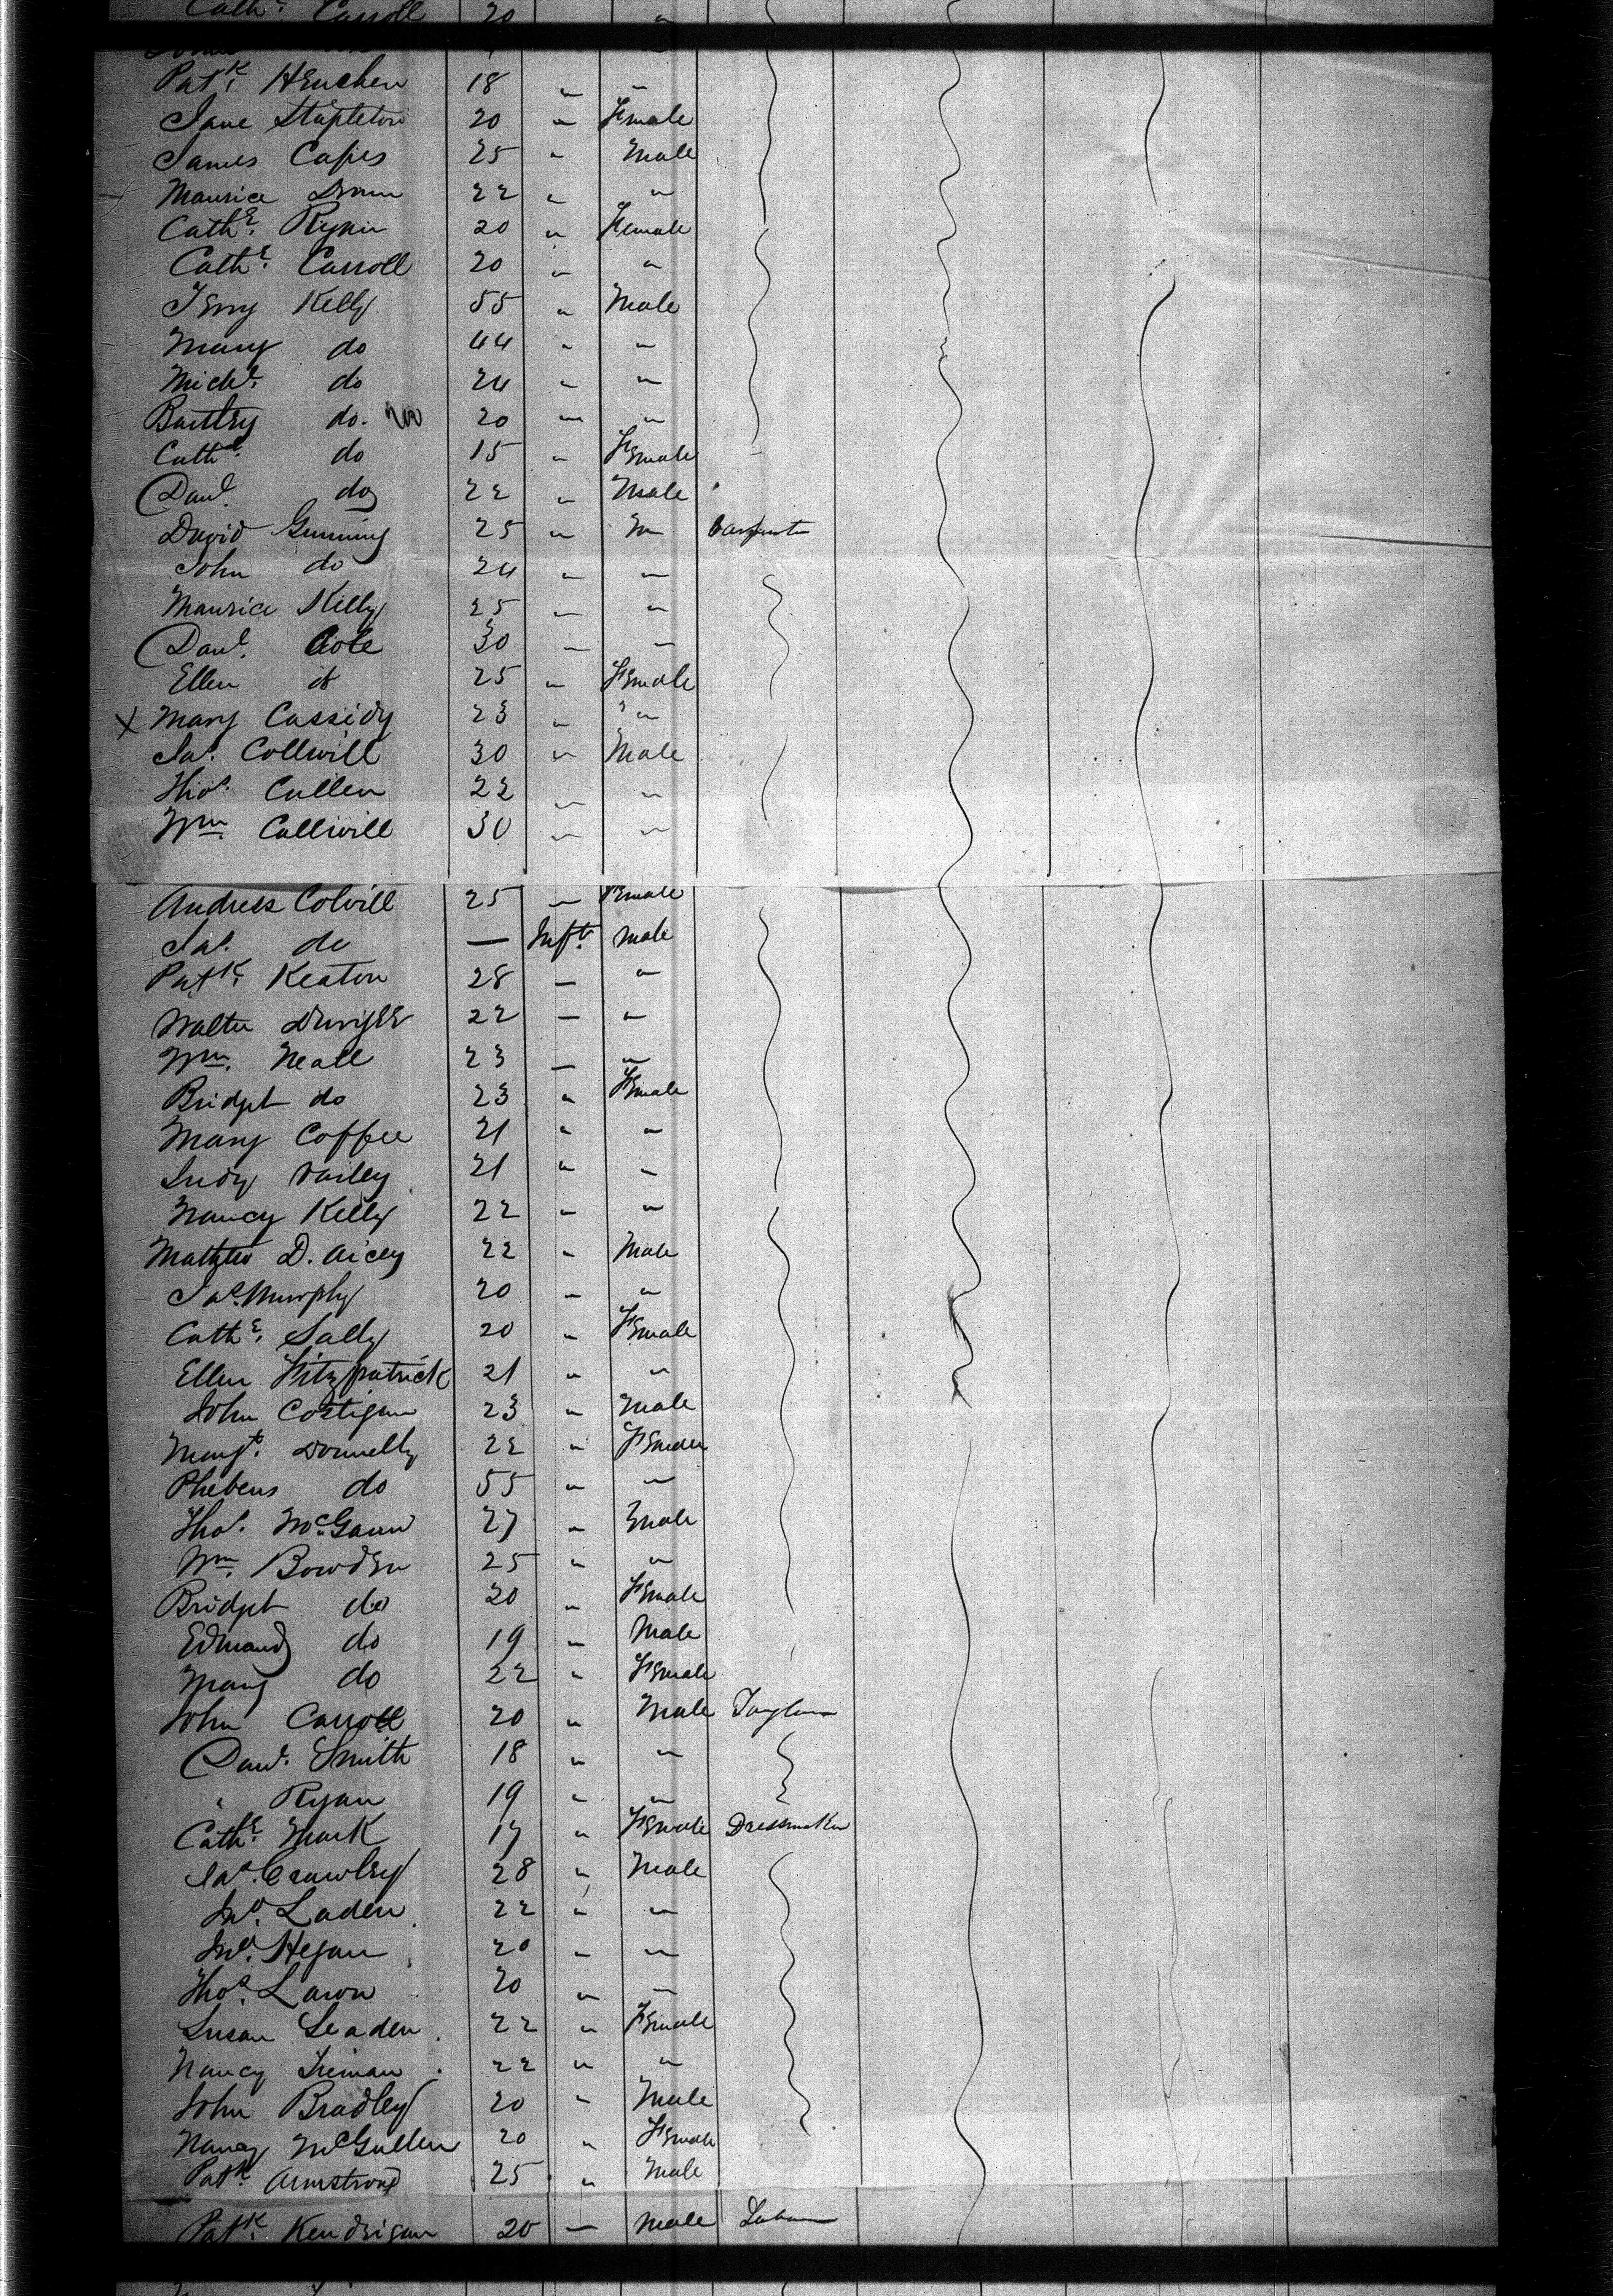 Cath.e Carroll 20 "
Pat.k Henchen 18 " "
Jane Stapleton 20 " Female
James Capes 25 " Male
Maurice 22 " "
Cath.e Ryan 20 " Female
Cath.e Carroll 20 " "
Kelly 55 " Male
Mary do 44 " "
Mich.l do 24 " "
do. 20 " "
Cath.e do 15 " Female
Danl. do 22 " Male
David Gunning 25 " " Carpenter
John do 24 " "
Maurice Kelly 25 " "
Danl. Cole 30 " "
Ellen do 25 " Female
X Mary Cassidy 23 " "
Jas. Collwill 30 " Male
Thos. Cullen 22 " "
Wm. Collwill 30 " "
Andress Colvill 25 — Female
Jas. do — Inft. Male
Patk. Keaton 28 — "
Walter 22 — "
Wm. Neall 23 — "
Bridget do 23 " Female
Mary Coffee 21 " "
Judy 21 " "
Nancy Kelly 22 " "
Mathew D. Aicey 22 " Male
Jas. Murphy 20 " "
Cath.e Sally 20 " Female
Ellen Fitzpatrick 21 " "
John Costigan 23 " Male
Margt. Donnelly 22 "
Phebeus do 55 " "
Thos. McGann 27 " Male
Wm. Bowden 25 " "
Bridget do 20 " Female
Edmund do 19 " Male
Mary do 22 " Female
John Carroll 20 " Male
Danl. Smith 18 " "
" Ryan 19 " "
Cath.e Mark 17 " Female Dressmaker
Jas. Crawley 28 " Male
Jno. Laden 22 " "
Jno. Hegan 20 " "
Thos. Lawn 20 " "
Susan Leaden 22 " Female
Nancy 22 " "
John Bradley 20 " Male
Nancy McGullen 20 " Female
Patk. Armstrong 25 " Male
Patk. Kendrigan 20 — Male